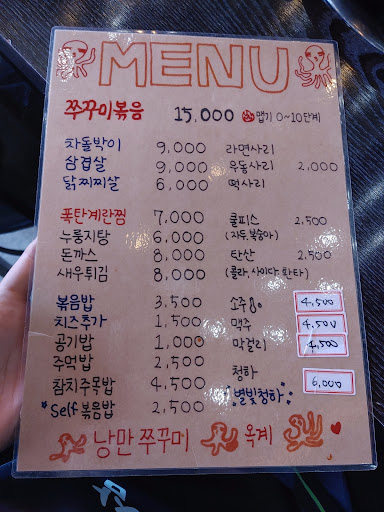 MENU
쭈꾸미볶음 15,000 맵기 0~10단계
차돌박이 9,000 라면사리
삼겹살 9,000 우동사리 2,000
닭찌찌살 6,000 떡사리
폭탄계란찜 7,000 쿨피스 2,500
누룽지탕 6,000 (자두, 복숭아)
돈까스 8,000 탄산 2,500
새우튀김 8,000 (콜라, 사이다, 환타)
볶음밥 3,500 소주 4,500
치즈추가 1,500 맥주 4,500
공기밥 1,000 막걸리 4,500
주먹밥 2,500 청하
참치주먹밥 4,500 별빛청하 6,000
*Self 볶음밥 2,500
낭만쭈꾸미 옥계